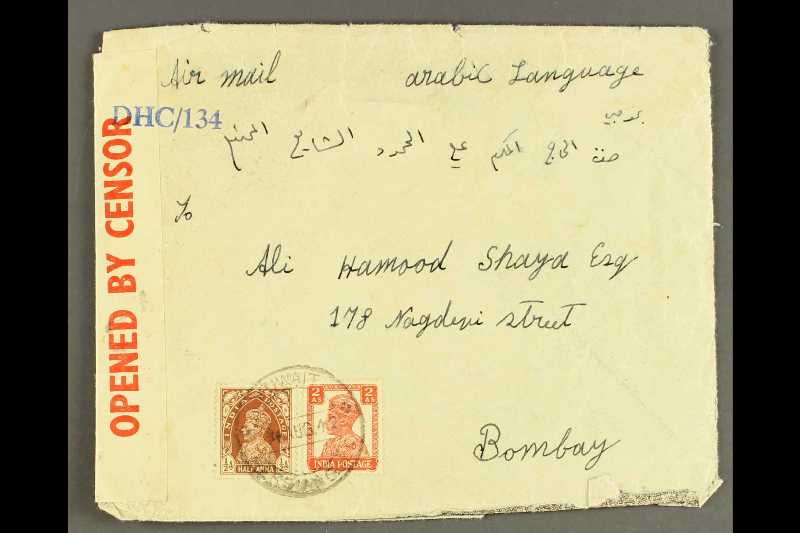 Air mail arabic Language
DHC/134
OPENED BY CENSOR
بومبي
حضرة الحاج المكرم علي الحمود الشايع المحترم
To
Ali Hamood Shaya Esq
178 Nagdevi street
Bombay
KUWAIT
AUG 42
PERSIAN G
INDIA POSTAGE
½ HALF ANNA ½
2 AS 2 AS
INDIA POSTAGE